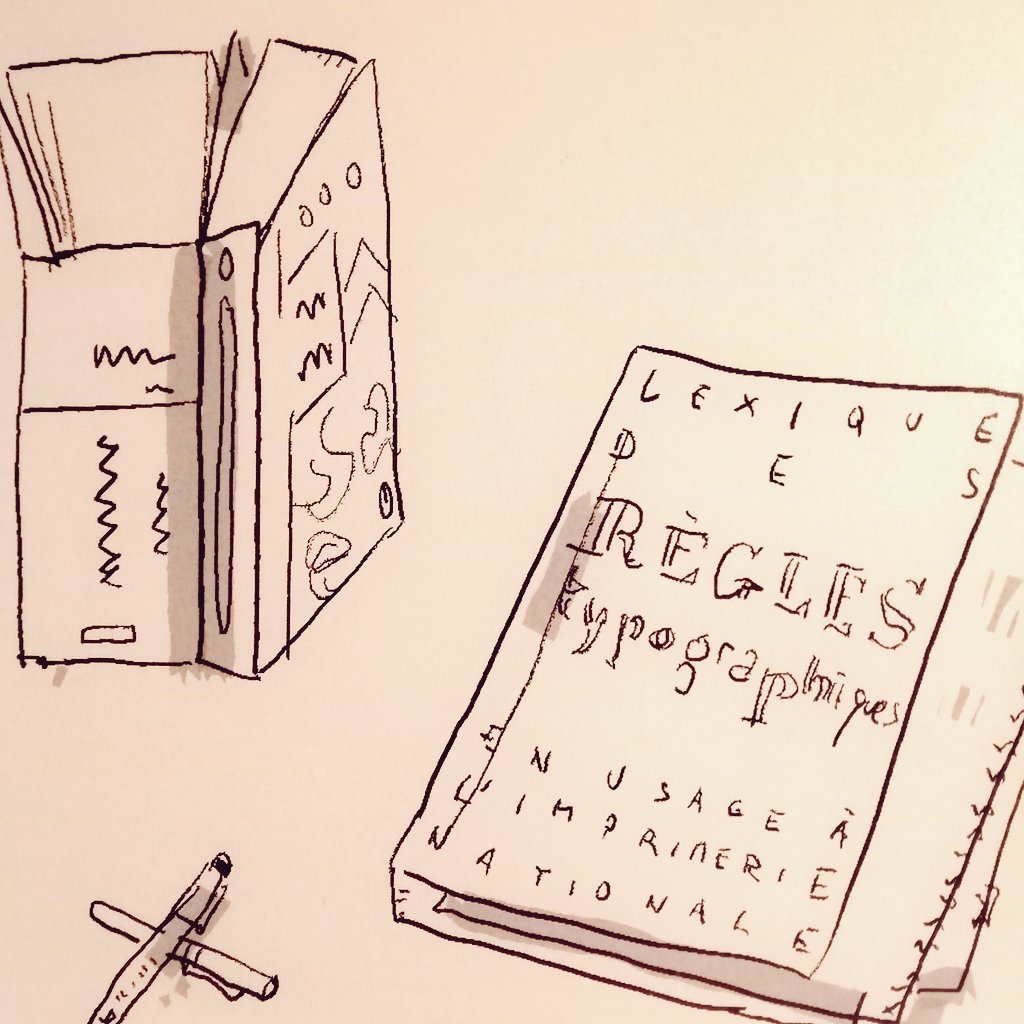 LEXIQUE
DES
RÈGLES
typographiques
EN USAGE À
L'IMPRIMERIE
NATIONALE